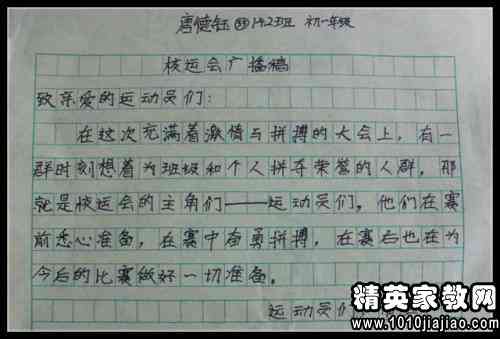 唐健钰 142班 初一年级
校运会广播稿
致亲爱的运动员们:
在这次充满着激情与拼搏的大会上,有一
群时刻想着为班级和个人拼夺荣誉的人群,那
就是校运会的主角们——运动员们,他们在赛
前悉心准备,在赛中奋勇拼搏,在赛后也在为
今后的比赛做好一切准备。
运动员们
精英家教网
www.1010jiajiao.com